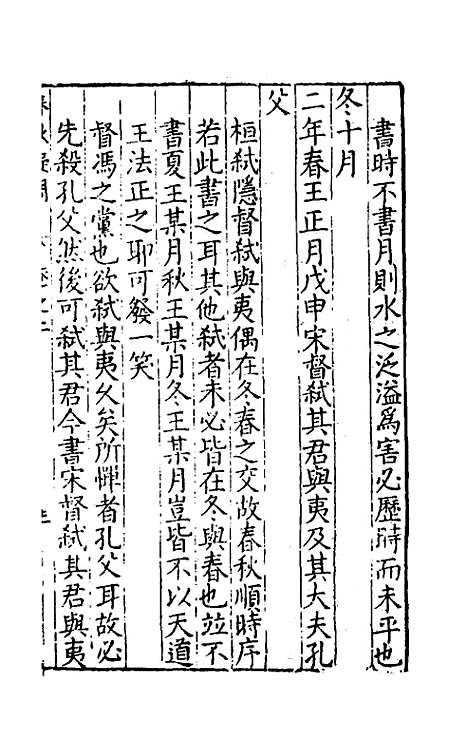 書時不書月則水之泛溢爲害必歷時而未平也
冬十月
二年春王正月戊申宋督弑其君與夷及其大夫孔
父
桓弑隱督弑與夷偶在冬春之交故春秋順時序
若此書之耳其他弑者未必皆在冬與春也竝不
書夏王某月秋王某月冬王某月豈皆不以天道
王法正之耶可發一笑
督馮之黨也欲弑與夷久矣所憚者孔父耳故必
先殺孔父然後可弑其君今書宋督弑其君與夷